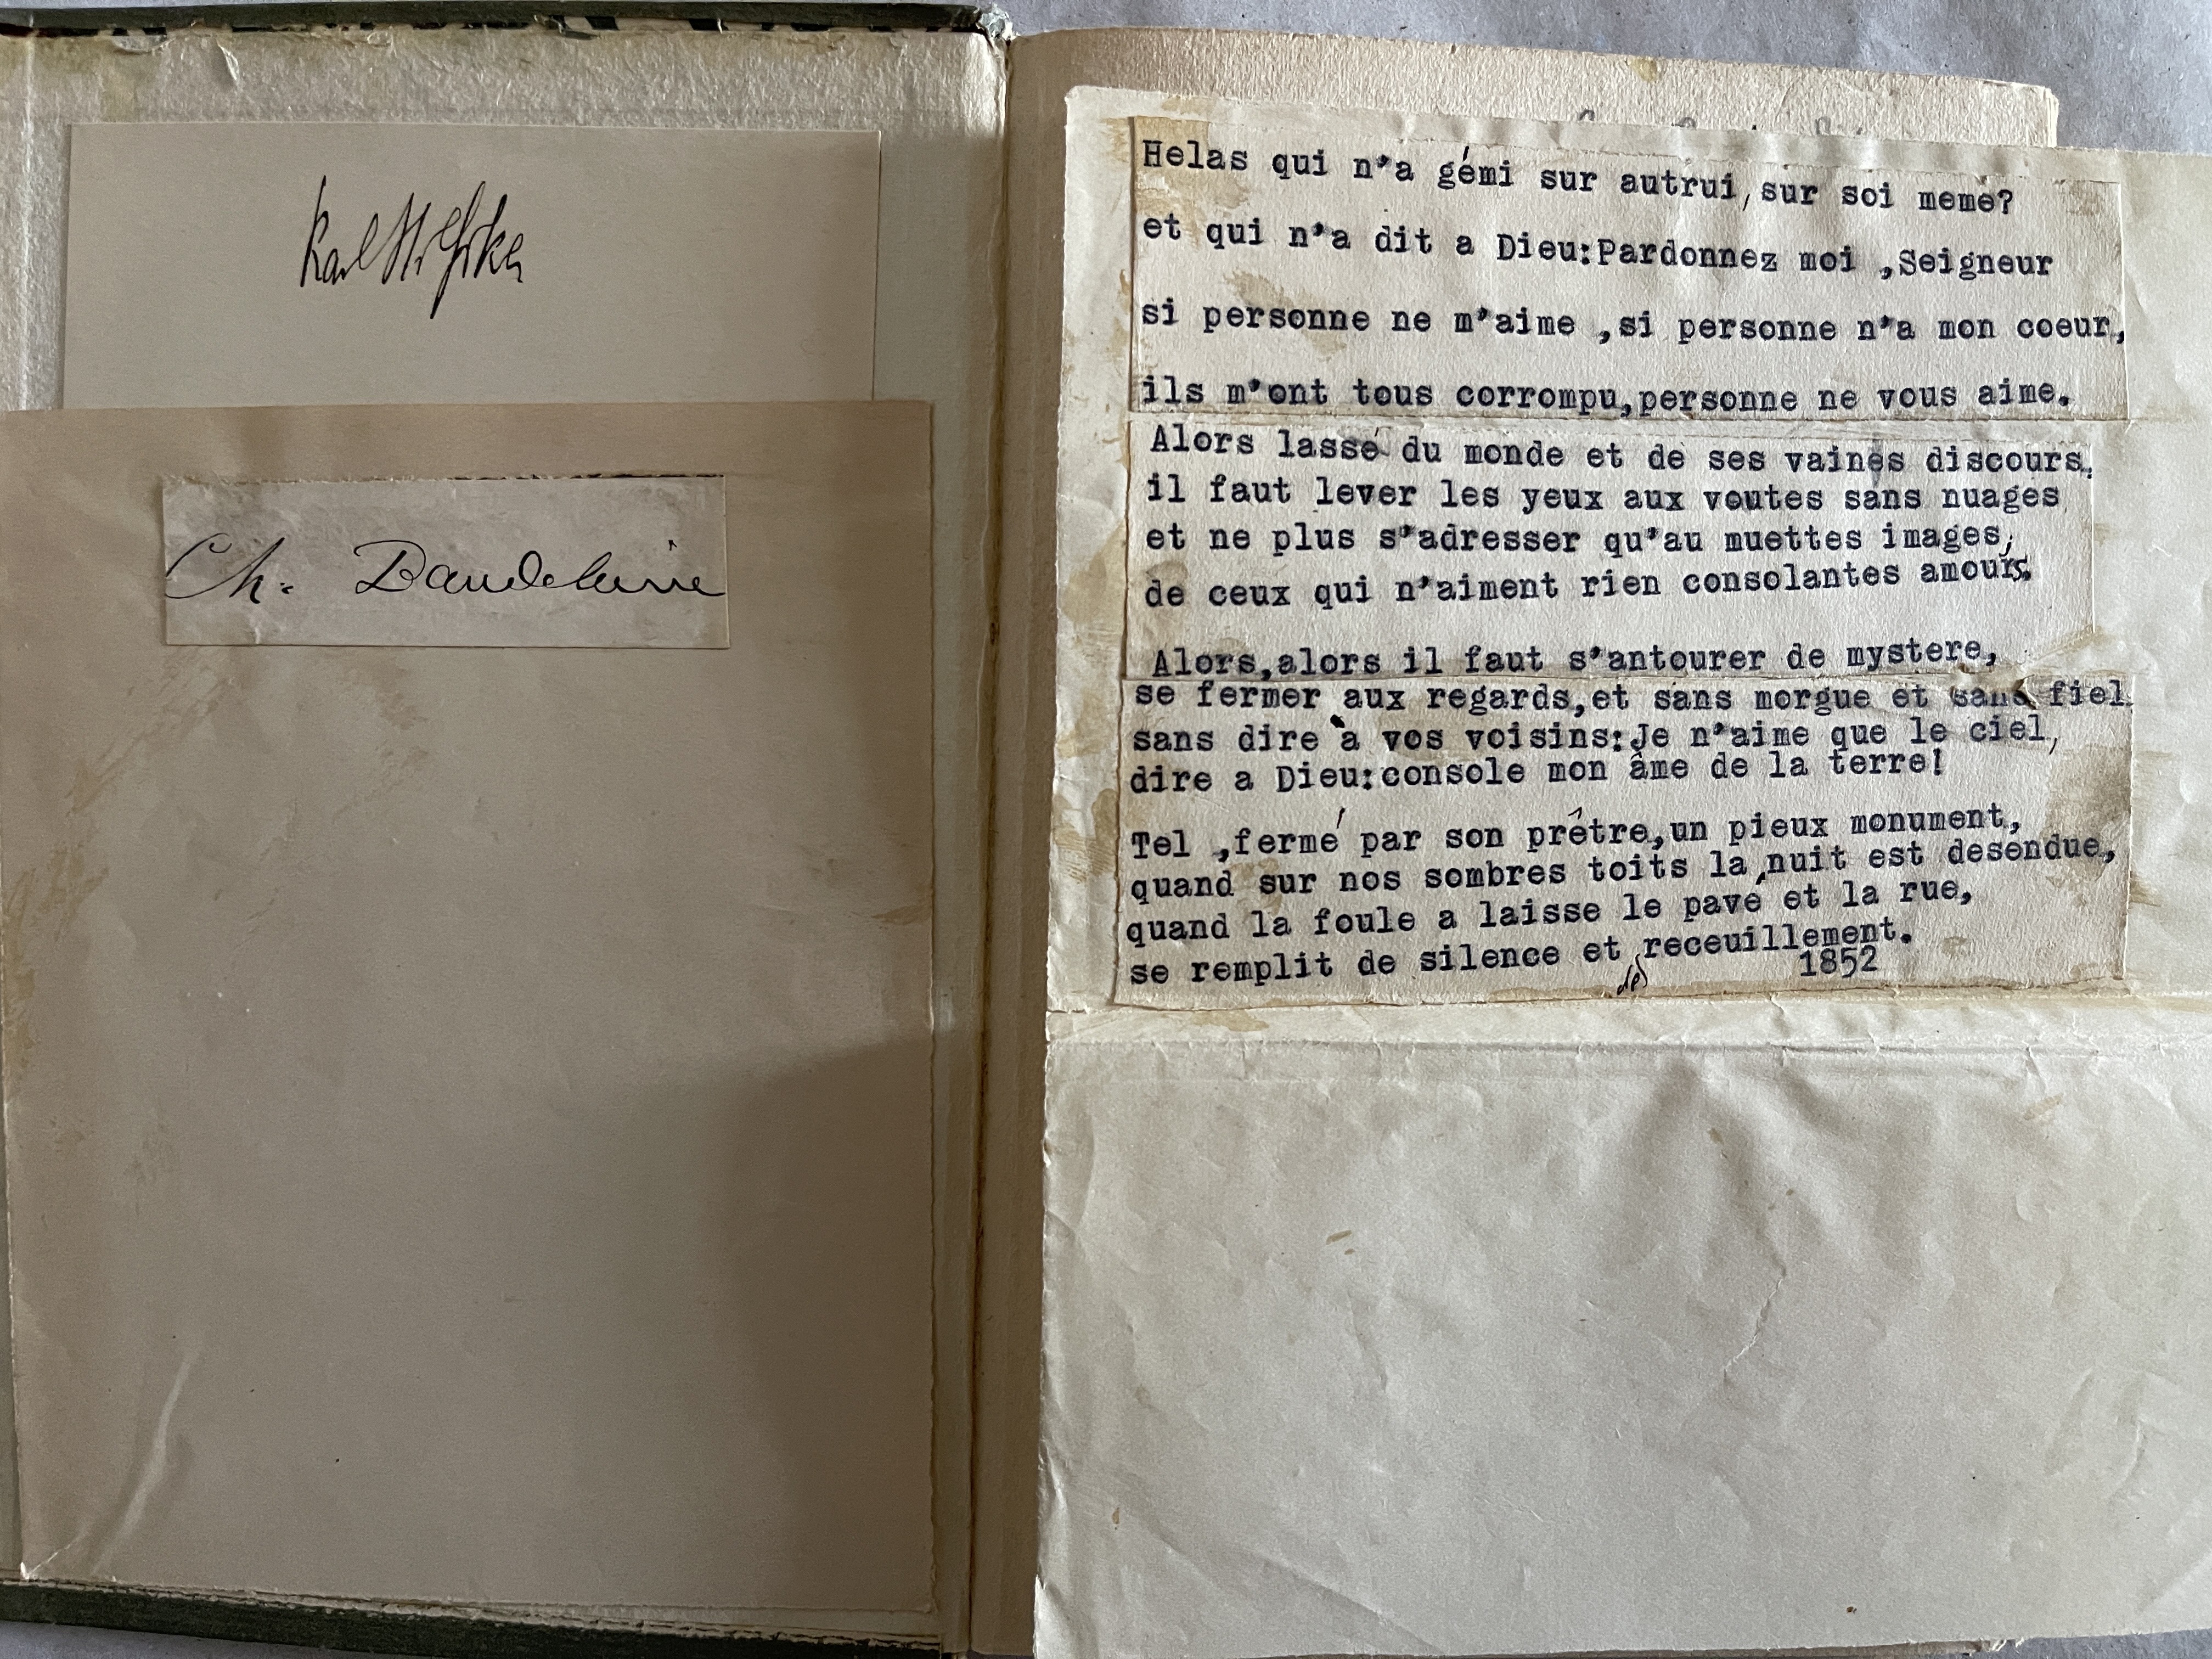 Karl
Ch. Baudelaire
Helas qui n'a gémi sur autrui, sur soi meme?
et qui n'a dit a Dieu:Pardonnez moi ,Seigneur
si personne ne m'aime ,si personne n'a mon coeur,
ils m'ont tous corrompu,personne ne vous aime.
Alors lassé du monde et de ses vaines discours,
il faut lever les yeux aux voutes sans nuages
et ne plus s'adresser qu'au muettes images,
de ceux qui n'aiment rien consolantes amours.
Alors,alors il faut s'antourer de mystere,
se fermer aux regards,et sans morgue et sans fiel
sans dire à vos voisins:Je n'aime que le ciel,
dire a Dieu:console mon âme de la terre!
Tel ,fermé par son prêtre,un pieux monument,
quand sur nos sombres toits la nuit est desendue,
quand la foule a laisse le pavé et la rue,
se remplit de silence et de receuillement.
1852